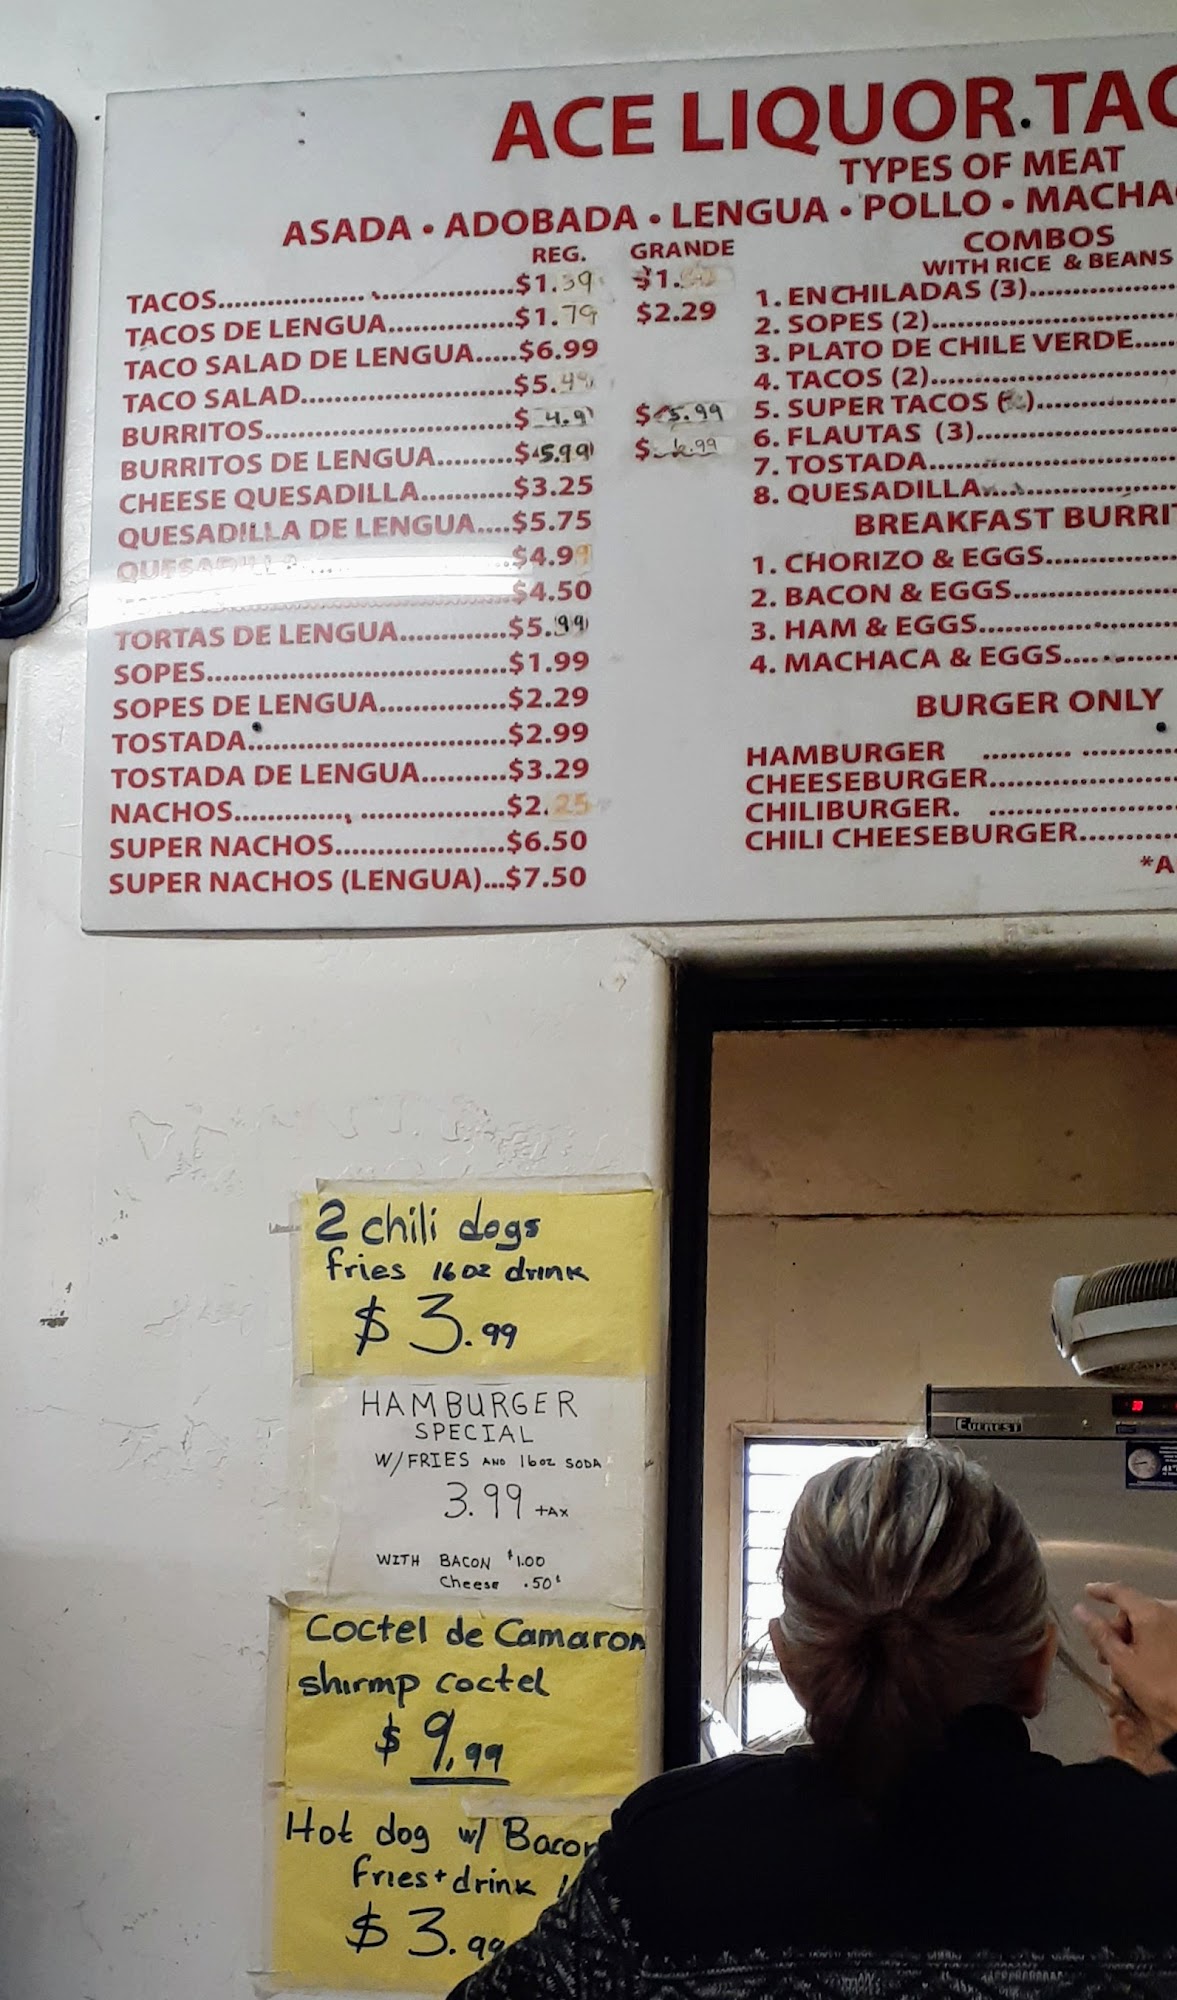 ACE LIQUOR TAC
TYPES OF MEAT
ASADA • ADOBADA • LENGUA • POLLO • MACHA
REG. GRANDE
TACOS........................................$1.39 $1.
TACOS DE LENGUA................$1.79 $2.29
TACO SALAD DE LENGUA.....$6.99
TACO SALAD...........................$5.49
BURRITOS................................$4.9 $5.99
BURRITOS DE LENGUA.........$5.99 $6.99
CHEESE QUESADILLA...........$3.25
QUESADILLA DE LENGUA....$5.75
QUESADILLA............................$4.99
$4.50
TORTAS DE LENGUA.............$5.99
SOPES.......................................$1.99
SOPES DE LENGUA................$2.29
TOSTADA.................................$2.99
TOSTADA DE LENGUA..........$3.29
NACHOS..................................$2.25
SUPER NACHOS.....................$6.50
SUPER NACHOS (LENGUA)...$7.50
COMBOS
WITH RICE & BEANS
1. ENCHILADAS (3)...............
2. SOPES (2)..........................
3. PLATO DE CHILE VERDE.....
4. TACOS (2)..........................
5. SUPER TACOS ( )...............
6. FLAUTAS (3).....................
7. TOSTADA..........................
8. QUESADILLA.....................
BREAKFAST BURRIT
1. CHORIZO & EGGS..............
2. BACON & EGGS.................
3. HAM & EGGS....................
4. MACHACA & EGGS............
BURGER ONLY
HAMBURGER ....................
CHEESEBURGER....................
CHILIBURGER. ....................
CHILI CHEESEBURGER..........
*A
2 chili dogs
fries 16oz drink
$3.99
HAMBURGER
SPECIAL
W/FRIES AND 16oz SODA
3.99 +AX
WITH BACON $1.00
Cheese .50¢
Coctel de Camaron
shirmp coctel
$9.99
Hot dog w/ Bacon
fries + drink
$3.99
EVEREST